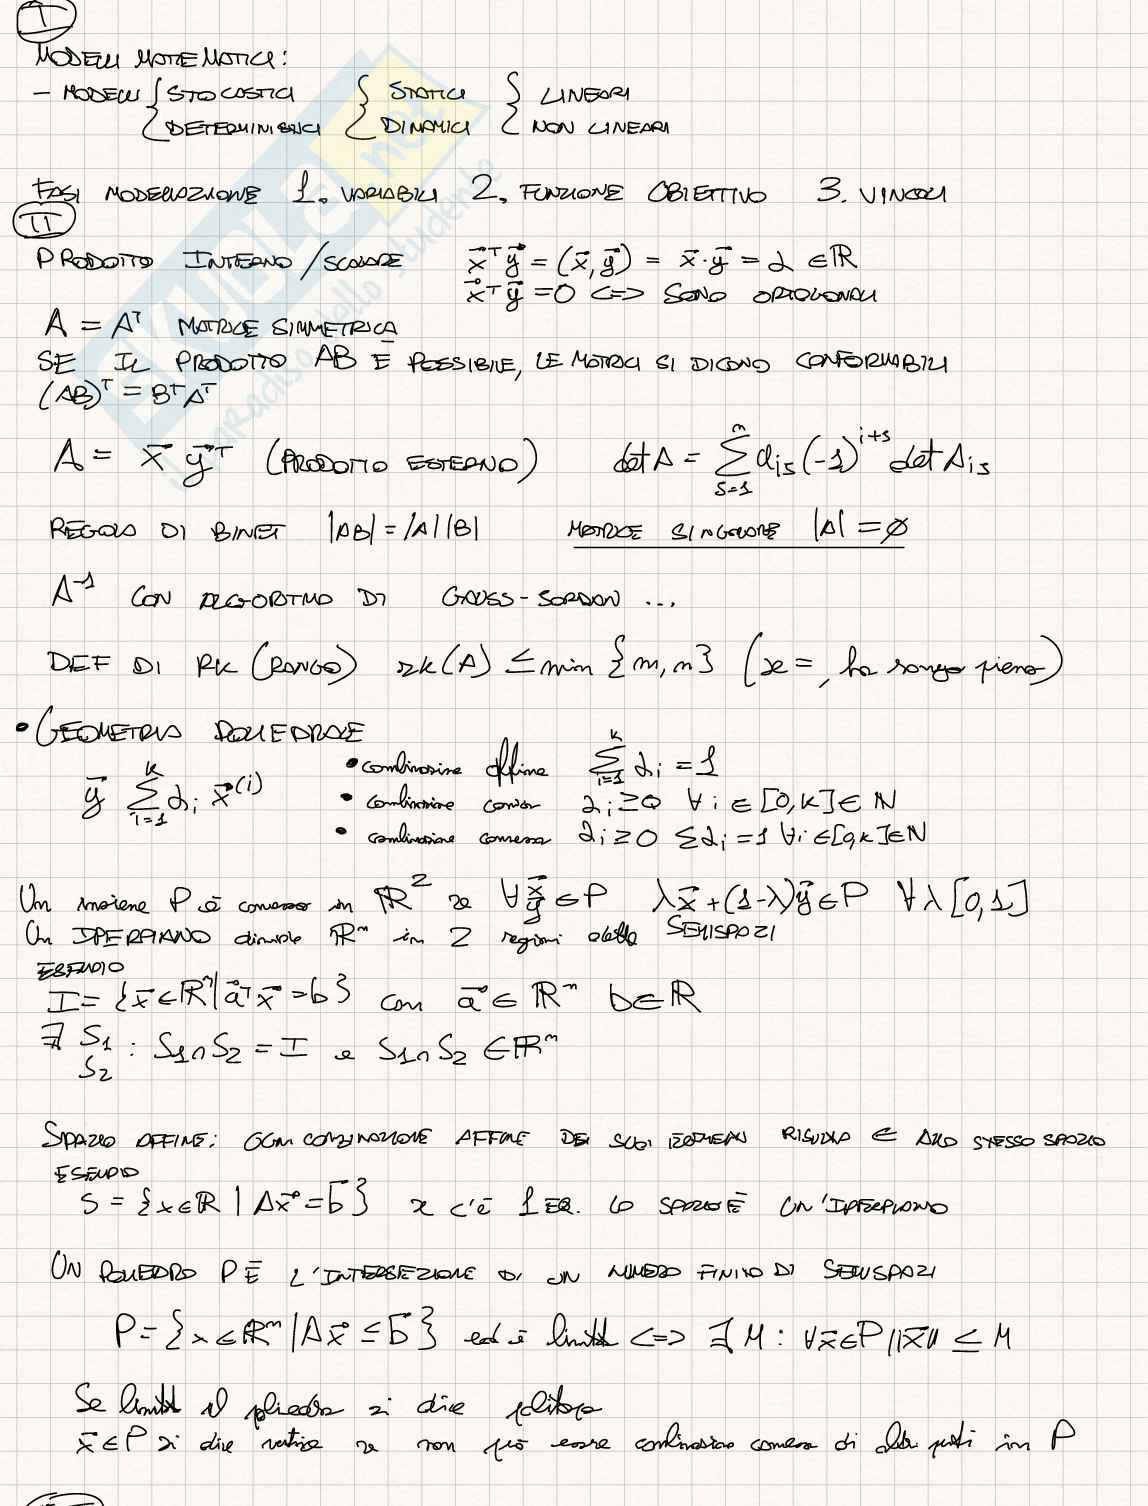 I
MODELLI MATEMATICI:
- MODELLI { STOCASTICI { STATICI { LINEARI
DETERMINISTICI DINAMICI NON LINEARI
FASI MODELLAZIONE 1. VARIABILI 2. FUNZIONE OBIETTIVO 3. VINCOLI
II
PRODOTTO INTERNO/SCALARE x⃗ᵀy⃗ = (x⃗,y⃗) = x⃗·y⃗ = α ∈ ℝ
x⃗ᵀy⃗ = 0 <=> SONO ORTOGONALI
A = Aᵀ MATRICE SIMMETRICA
SE IL PRODOTTO AB È POSSIBILE, LE MATRICI SI DICONO CONFORMABILI
(AB)ᵀ = BᵀAᵀ
A = x⃗ y⃗ᵀ (PRODOTTO ESTERNO) det A = Σⁿ_{j=1} a_{ij} (-1)^{i+j} det A_{ij}
REGOLA DI BINET |AB| = |A||B| MATRICE SINGOLARE |A| = ∅
A⁻¹ CON ALGORITMO DI GAUSS-JORDAN ...
DEF DI RK (RANGO) rk(A) ≤ min {m, n} (se =, ha rango pieno)
• GEOMETRIA POLIEDRALE
y⃗ Σᵏ_{i=1} α_i x⃗⁽ⁱ⁾ • combinazione affine Σᵏ_{i=1} α_i = 1
• combinazione conica α_i ≥ 0 ∀i ∈ [0,k] ∈ ℕ
• combinazione convessa α_i ≥ 0 Σα_i = 1 ∀i ∈ [0,k] ∈ ℕ
Un insieme P è convesso in ℝ² se ∀ x⃗ y⃗ ∈ P λx⃗ + (1-λ)y⃗ ∈ P ∀λ [0,1]
Un IPERPIANO divide ℝⁿ in 2 regioni dette SEMISPAZI
ESEMPIO
I = {x⃗ ∈ ℝⁿ | a⃗ᵀx⃗ = b} con a⃗ ∈ ℝⁿ b ∈ ℝ
∃ S₁ S₂ : S₁ ∩ S₂ = I e S₁ ∩ S₂ ∈ ℝⁿ
SPAZIO AFFINE: OGNI COMBINAZIONE AFFINE DEI SUOI RISULTA ∈ ALLO STESSO SPAZIO
ESEMPIO
S = {x ∈ ℝ | Ax⃗ = b⃗} se c'è 1 EQ. LO SPAZIO È UN'IPERPIANO
UN POLIEDRO P È L'INTERSEZIONE DI UN NUMERO FINITO DI SEMISPAZI
P = {x ∈ ℝⁿ | Ax⃗ ≤ b⃗} ed è limitato <=> ∃ M : ∀x⃗ ∈ P ||x⃗|| ≤ M
Se limitato il poliedro si dice politopo
x⃗ ∈ P si dice vertice se non può essere combinazione convessa di altri punti in P